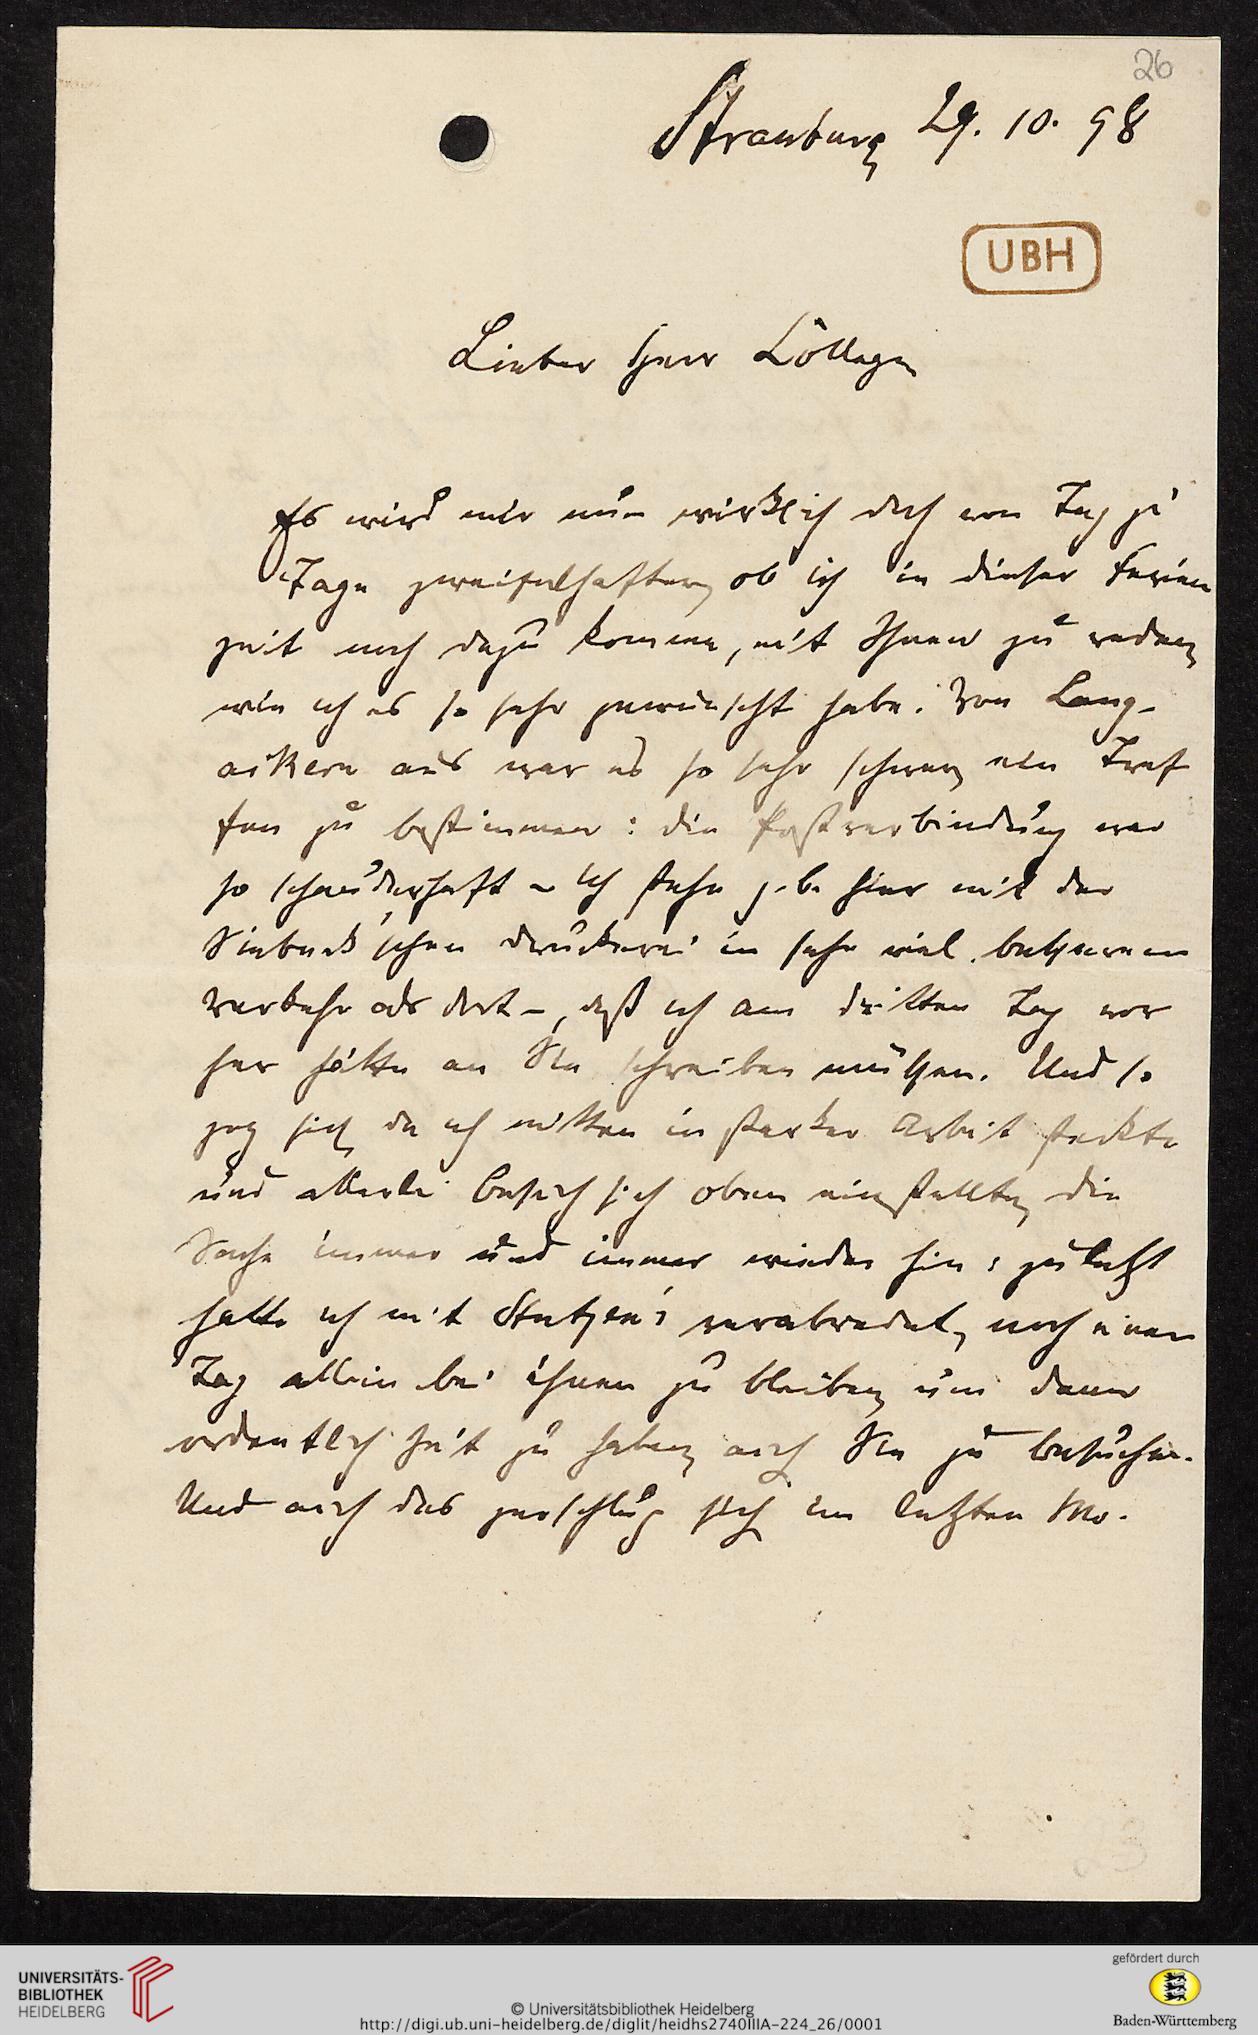 26
Strasburg 29. 10. 98
UBH
Lieber Herr Kollege
Es wird mir nun wirklich doch von Tag zu
Tage zweifelhafter, ob ich in dieser Ferien
zeit noch dazu komme, mit Ihnen zu reden,
wie ich es so sehr gewünscht habe. Von Lang-
ackern aus war es so sehr schwer, ein Tref
fen zu bestimmen: die Postverbindung war
so schauderhaft – ich stehe z. b. hier mit der
Siebeck'schen Druckerei in sehr viel besserem
Verkehr als dort –, daß ich am dritten Tag vor
her hätte an Sie schreiben müssen. Und so
zog sich, da ich mitten in starker Arbeit steckte
und allerlei Besuch sich oben einstellte, die
Sache immer und immer wieder hin: zuletzt
hatte ich mit Stutzens verabredet, noch einen
Tag allein bei ihnen zu bleiben, um dann
ordentlich Zeit zu haben, auch Sie zu besuchen.
Und auch das zerschlug sich im letzten Mo-
UNIVERSITÄTS-
BIBLIOTHEK
HEIDELBERG
© Universitätsbibliothek Heidelberg
http://digi.ub.uni-heidelberg.de/diglit/heidhs2740IIIA-224_26/0001
gefördert durch
Baden-Württemberg